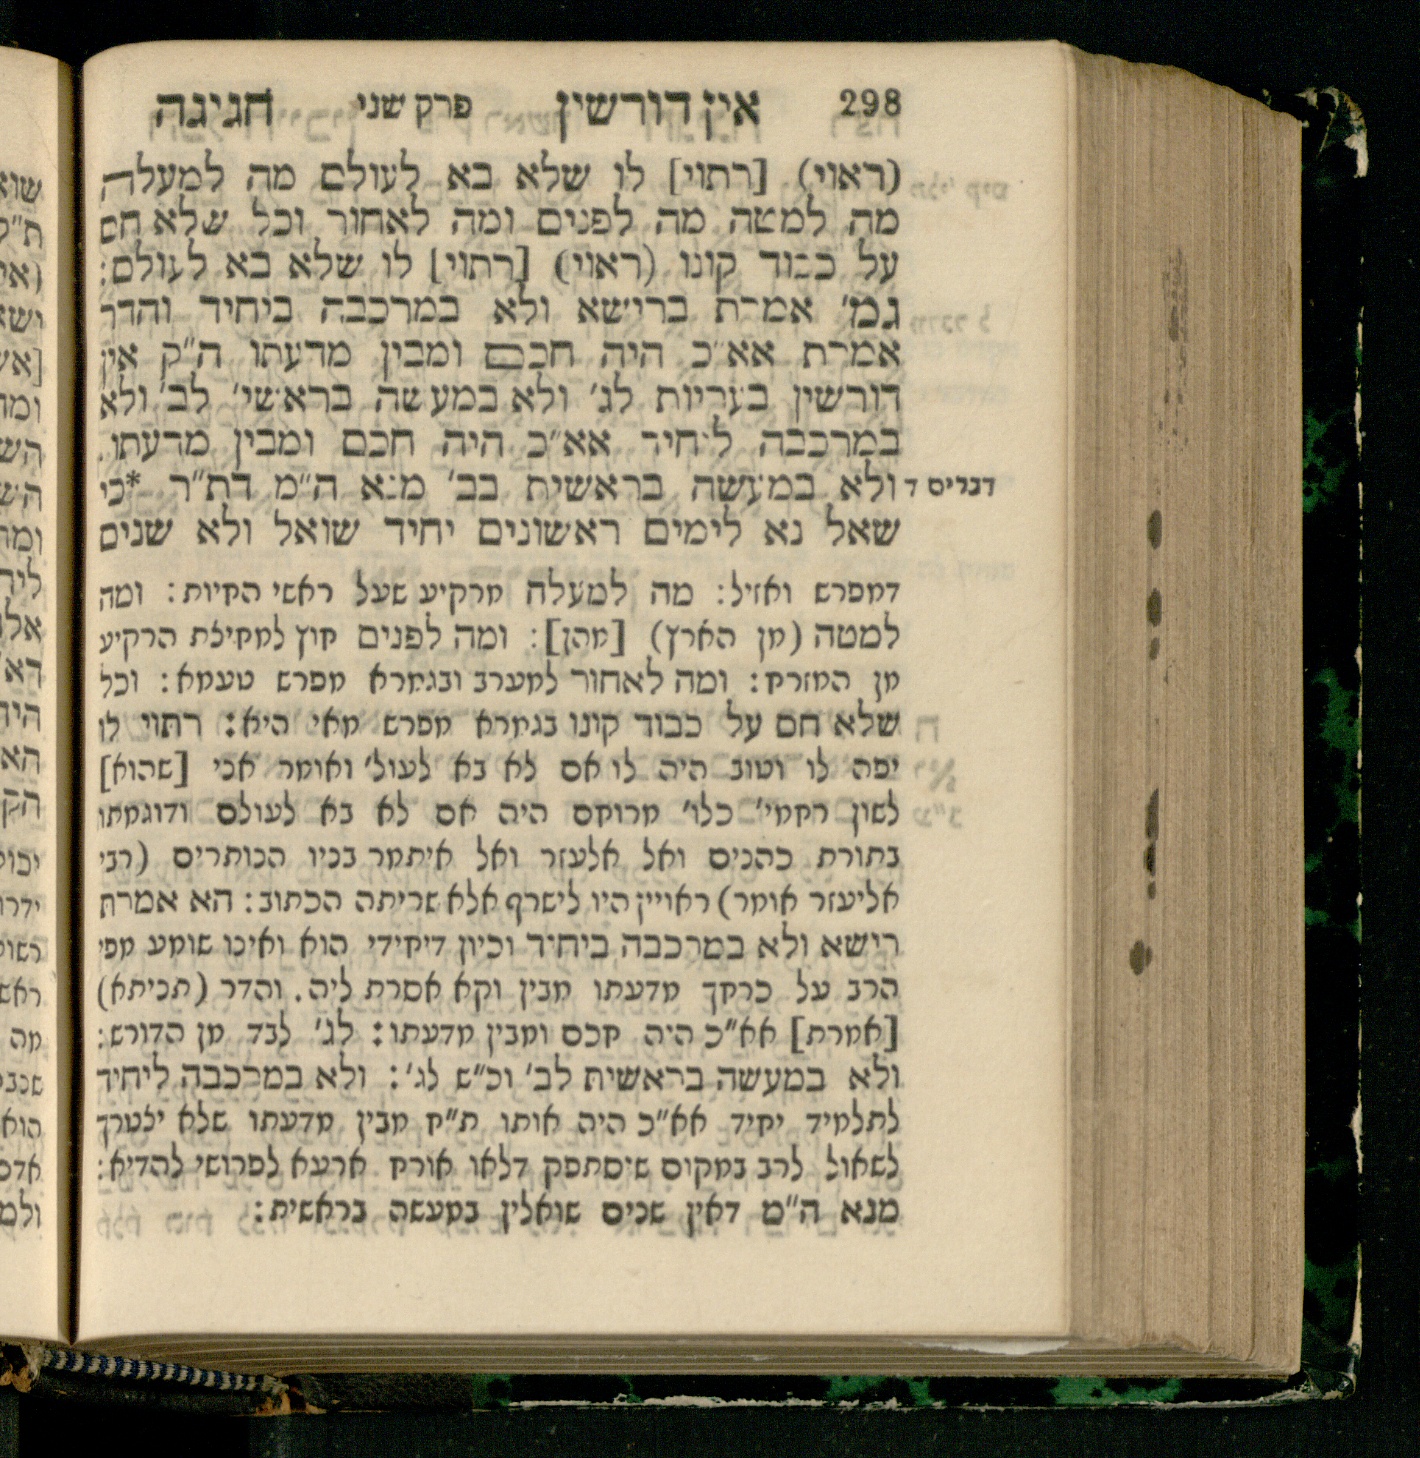 298 אין דורשין פרק שני חגיגה
(ראוי) [רתוי] לו שלא בא לעולם מה למעלה
מה למטה מה לפנים ומה לאחור וכל שלא חס
על כבוד קונו (ראוי) [רתוי] לו שלא בא לעולם:
גמ׳ אמרת ברישא ולא במרכבה ביחיד והדר
אמרת אא״כ היה חכם ומבין מדעתו ה״ק אין
דורשין בעריות לג׳ ולא במעשה בראשי׳ לב׳ ולא
במרכבה ליחיד אא״כ היה חכם ומבין מדעתו.
דברים ד ולא במעשה בראשית בב׳ מנא ה״מ דת״ר *כי
שאל נא לימים ראשונים יחיד שואל ולא שנים
דמפרש ואזיל: מה למעלה מרקיע שעל ראשי החיות: ומה
למטה (מן הארץ) [מהן]: ומה לפנים חוץ למחילת הרקיע
מן המזרח: ומה לאחור למערב ובגמרא מפרש טעמא: וכל
שלא חס על כבוד קונו בגמרא מפרש מאי היא: רתוי לו
יפה לו וטוב היה לו אם לא בא לעול׳ ואומר אני [שהוא]
לשון רחמי׳ כלו׳ מרוחם היה אם לא בא לעולם ודוגמתו
בתורת כהנים ואל אלעזר ואל איתמר בניו הנותרים (רבי
אליעזר אומר) ראויין היו לישרף אלא שריתה הכתוב: הא אמרת
רישא ולא במרכבה ביחיד וכיון דיחידי הוא ואינו שומע מפי
הרב על כרחך מדעתו מבין וקא אסרת ליה. והדר (תניתא)
[אמרת] אא״כ היה חכם ומבין מדעתו: לג׳ לבד מן הדורש:
ולא במעשה בראשית לב׳ וכ״ש לג׳: ולא במרכבה ליחיד
לתלמיד יחיד אא״כ היה אותו ת״ח מבין מדעתו שלא יצטרך
לשאול לרב במקום שיסתפק דלאו אורח ארעא לפרושי להדיא:
מנא ה״מ דאין שנים שואלין במעשה בראשית: